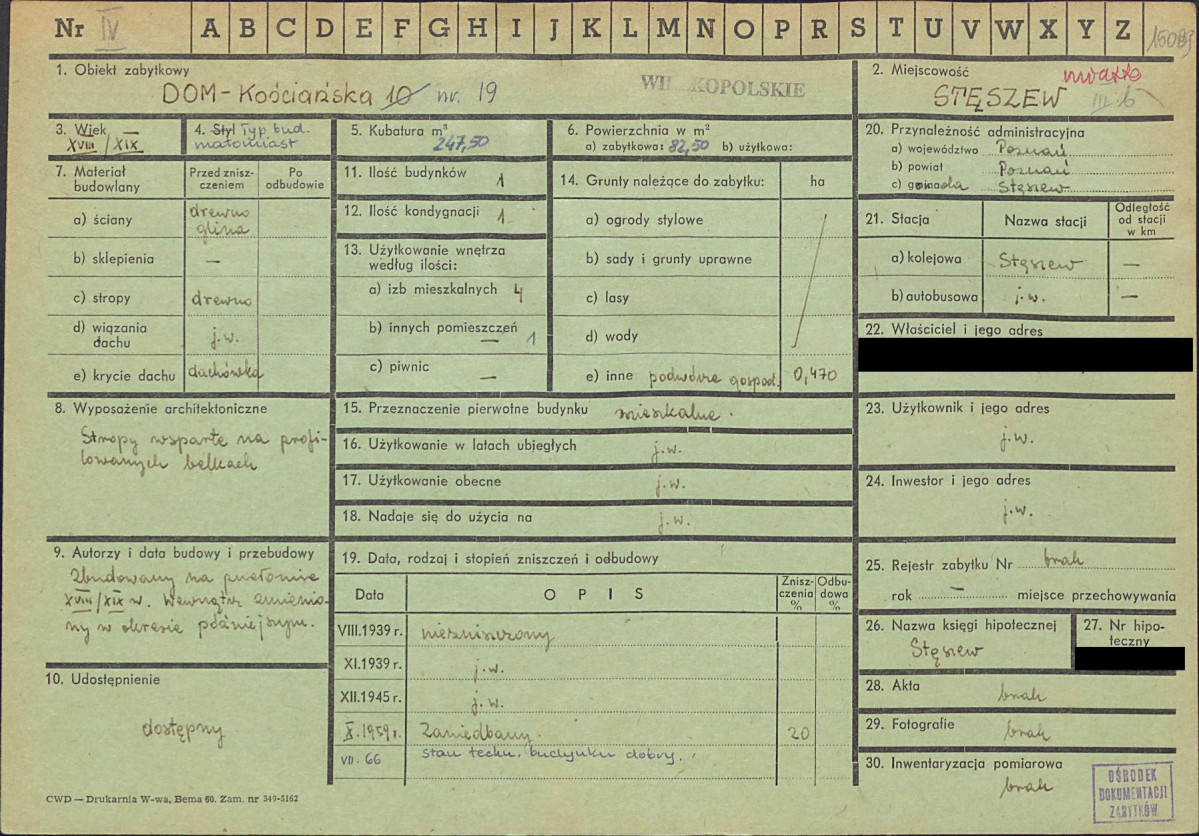 Nr IV A B C D E F G H I J K L M N O P R S T U V W X Y Z
1. Obiekt zabytkowy
DOM - Kościańska 10 nr. 19
WIELKOPOLSKIE
2. Miejscowość
STĘSZEW III b
3. Wiek
XVIII/XIX
4. Styl Typ. bud.
małomiast
5. Kubatura m³
247,50
6. Powierzchnia w m²
a) zabytkowa: 82,50 b) użytkowa:
20. Przynależność administracyjna
a) województwo Poznań
b) powiat Poznań
c) Stęszew
7. Materiał budowlany
Przed zniszczeniem
Po odbudowie
a) ściany drewno glina
b) sklepienia —
c) stropy drewno
d) wiązania dachu j.w.
e) krycie dachu dachówka
11. Ilość budynków 1
12. Ilość kondygnacji 1
13. Użytkowanie wnętrza
według ilości:
a) izb mieszkalnych 4
b) innych pomieszczeń — 1
c) piwnic —
14. Grunty należące do zabytku: ha
a) ogrody stylowe
b) sady i grunty uprawne
c) lasy
d) wody
e) inne podwórze gospod. 0,470
21. Stacja Nazwa stacji Odległość od stacji w km
a) kolejowa Stęszew —
b) autobusowa j.w. —
22. Właściciel i jego adres
8. Wyposażenie architektoniczne
Stropy wsparte na profi-
lowanych belkach
15. Przeznaczenie pierwotne budynku mieszkalne.
16. Użytkowanie w latach ubiegłych j.w.
17. Użytkowanie obecne j.w.
18. Nadaje się do użycia na j.w.
23. Użytkownik i jego adres
j.w.
24. Inwestor i jego adres
j.w.
9. Autorzy i data budowy i przebudowy
Zbudowany na przełomie
XVIII/XIX w. Wewnątrz zmienio-
ny w okresie późniejszym.
10. Udostępnienie
dostępny
19. Data, rodzaj i stopień zniszczeń i odbudowy
Data OPIS Zniszczenia % Odbudowa %
VIII.1939 r. niezniszczony
XI.1939 r. j.w.
XII.1945 r. j.w.
X.1959 r. Zaniedbany. 20
VII. 66 stan techn. budynku dobry.
25. Rejestr zabytku Nr brak
rok — miejsce przechowywania
26. Nazwa księgi hipotecznej
Stęszew
27. Nr hipo-
teczny
28. Akta brak
29. Fotografie brak
30. Inwentaryzacja pomiarowa
brak
OŚRODEK
DOKUMENTACJI
ZABYTKÓW
CWD — Drukarnia W-wa, Bema 60. Zam. nr 349-5162